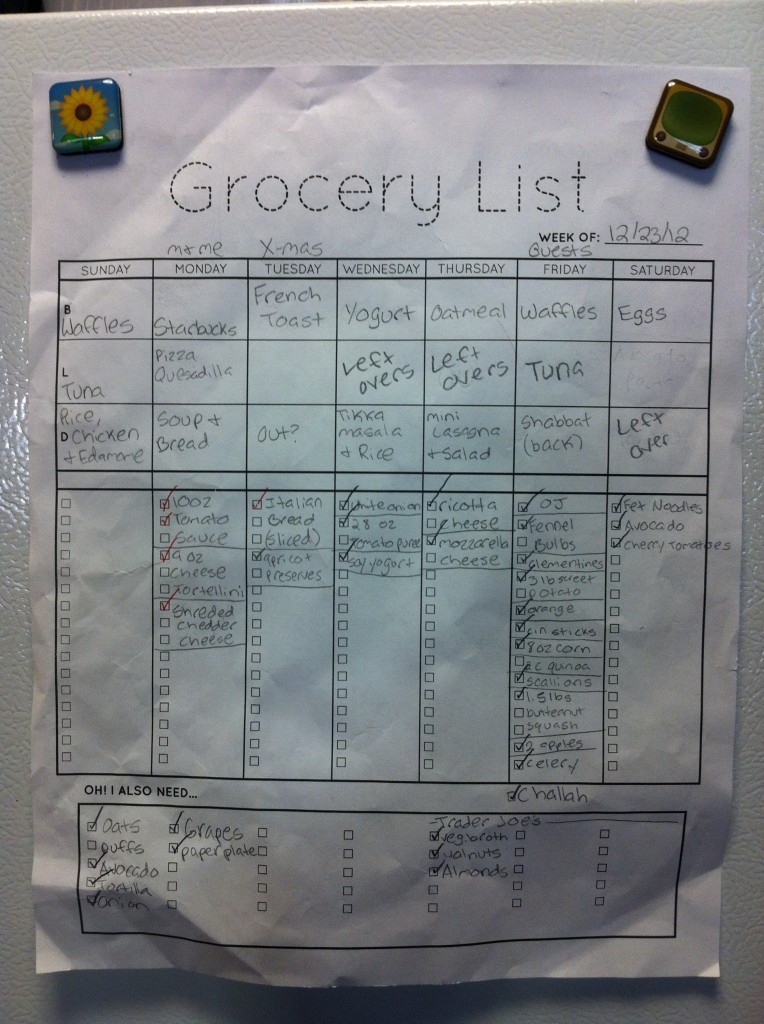 Grocery List
WEEK OF: 12/23/12
m+me X-mas Guests
SUNDAY MONDAY TUESDAY WEDNESDAY THURSDAY FRIDAY SATURDAY
B
Waffles
Starbucks
French
Toast
Yogurt
Oatmeal
Waffles
Eggs
L
Tuna
Pizza
Quesadilla
Left
overs
Left
overs
Tuna
Rice,
D Chicken
+ Edamame
Soup +
Bread
Out?
Tikka
masala
+ Rice
mini
Lasagna
+ Salad
Shabbat
(back)
Left
over
10oz
Tomato
Sauce
9 oz
cheese
Tortellini
Shreded
chedder
cheese
Italian
Bread
(sliced)
apricot
preserves
white onion
28 oz
tomato puree
soy yogurt
ricotta
cheese
mozzarella
cheese
OJ
Fennel
Bulbs
clementines
3 lb sweet
potato
orange
cin sticks
8oz corn
2c quinoa
scallions
1.5 lbs
butternut
squash
2 apples
celery
Challah
Fet Noodles
Avocado
Cherry Tomatoes
OH! I ALSO NEED...
Oats
puffs
Avocado
Tortilla
onion
Grapes
paper plate
-Trader Joe's
veg broth
walnuts
Almonds